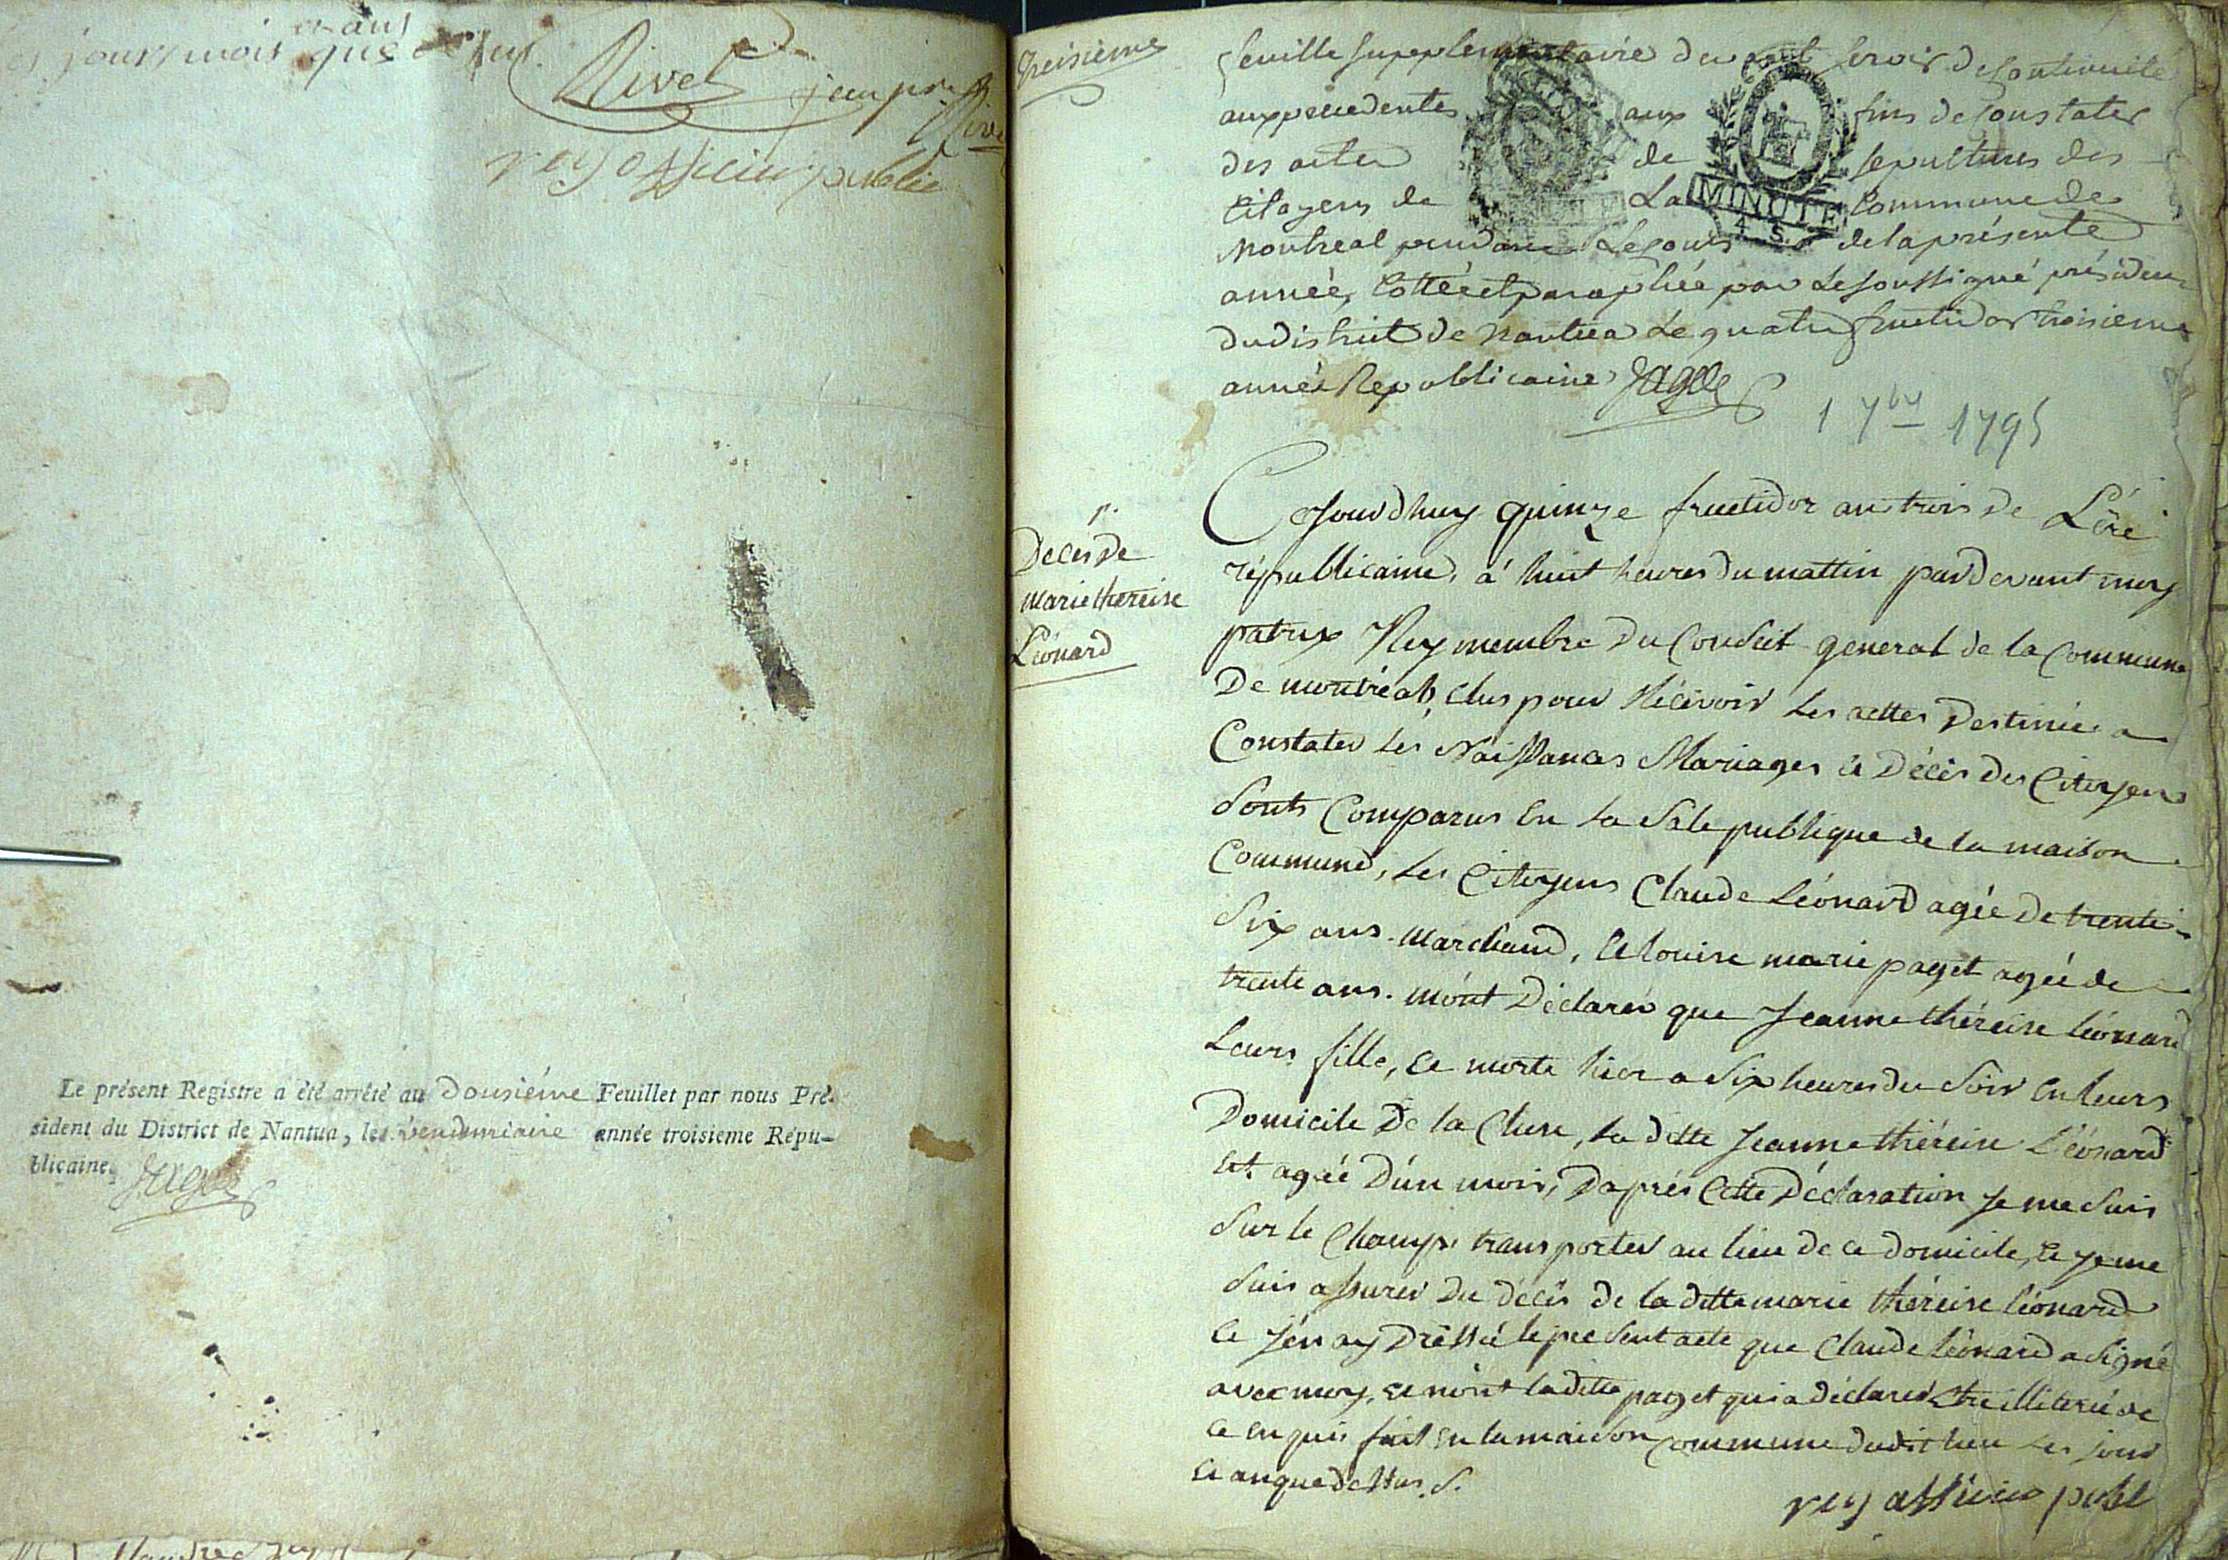 et ans
jours mois que dessus
Rivet
jean pre
Rive
rey officier public
Le présent Registre a été arrêté au Dousiéme Feuillet par nous Pré-
sident du District de Nantua, le vendemiaire année troisieme Répu-
blicaine,
Jagot
Treisieme
feuille supplementaire devant servir de continuité
aux precedentes aux fins de constater
des actes de sepultures des
Citoyens de La Commune de
MINUTE
4. S.
Montreal pendant le cours de la présente
année, Cottée et paraphée par le soussigné présiden
du district de Nantua le quatre fructidor troisieme
année Republicaine Jagot
1 7bre 1795
1.
Deces De
marie thereise
Léonard
Cejourdhuy quinze fructidor an trois de L'ére
républicaine, a huit heures du mattin pardevant moy
patrix Rey membre Du Conseit general de la Commune
De montréal, elus pour Récevoir Les acttes Destinée a
Constater les Naissances Mariages et Décés des Citoyens
Sonts Comparus En La Sale publique de la maison
Commune, Les Cittoyens Claude Léonard agée De trente
Six ans. Marchand, et louise marie paget agée de
trente ans. m'ont Déclarer que Jeanne théreise léonard
Leurs fille, et morte hier a Six heures du Soir En leurs
Domicile De la Cluse, la ditte Jeanne théreise Léonard
Et agée D'un mois, D'aprés Cette Déclaration Je me Suis
Sur le Champs transporter au lieu de ce domicile, et je me
Suis assurer Du décés de la ditte marie théreise léonard
et J'en ay Dréssé le present acte que Claude léonard a Signé
avec moy, et nont la ditte paget qui a déclarer Etre illiterée de
ce enquis fait En la maison Commune dudit lieu Les jour
Et an que dessus. S.
rey officier publ